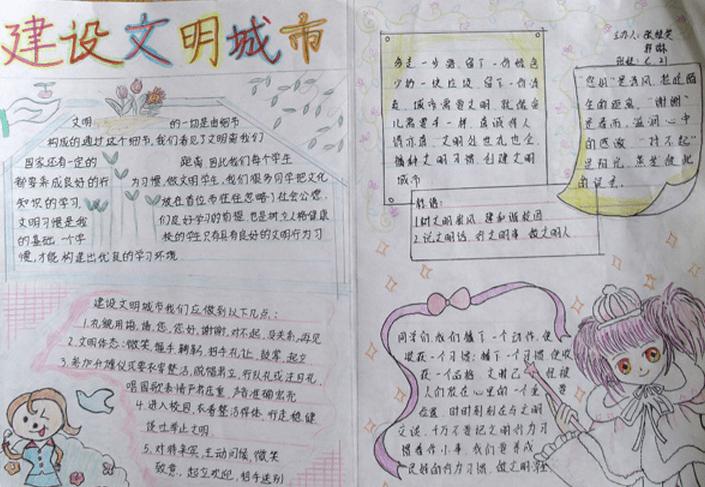 建设文明城市
文明 的一切是由细节
构成的通过这个细节,我们看见了文明离我们
国家还有一定的 距离,因此我们每个学生
都要养成良好的行 为习惯,做文明学生,我们服务同学把文化
知识的学习, 放在首位而往往忽略了社会公德,
文明习惯是我 们良好学习的前提,也是树立人格健康
的基础, 校的学生只有具有良好的文明行为习
惯,才能构建出优良的学习环境
建设文明城市我们应做到以下几点:
1.礼貌用语,请,您,您好,谢谢,对不起,没关系,再见
2.文明体态:微笑,握手,鞠躬,招手礼让,鼓掌,起立
3.参加升旗仪式要衣穿整洁,脱帽肃立,行队礼或注目礼,
唱国歌表情严肃庄重,声音准确宏亮
4.进入校园,衣着整洁得体,行走稳健
谈吐举止文明
5.对待来宾,主动问候,微笑
致意,起立欢迎,招手送别
主办人:
班级:
多走一步路,留下一份绿色
少扔一块垃圾,留下一份洁
城市需要文明,就像鱼
儿需要水一样,真诚待人
文明处处
播种文明习惯,创建文明
城市
"您好"是春风,拉近陌
生的距离,"谢谢"
是春雨,滋润心中
的感激,"对不起"
是阳光,蒸发彼此
的误会。
标语:
1.树文明新风 建和谐校园
2.说文明话 行文明事 做文明人
同学们,我们播下一个动作,便
收获一个习惯;播下一个习惯,便收
获一个品格,文明已
人们放在心里的一个重
位置,时时刻刻在与文明
交谈,千万不要把文明行为习
惯看作小事,我们要养成
良好的行为习惯,做文明学